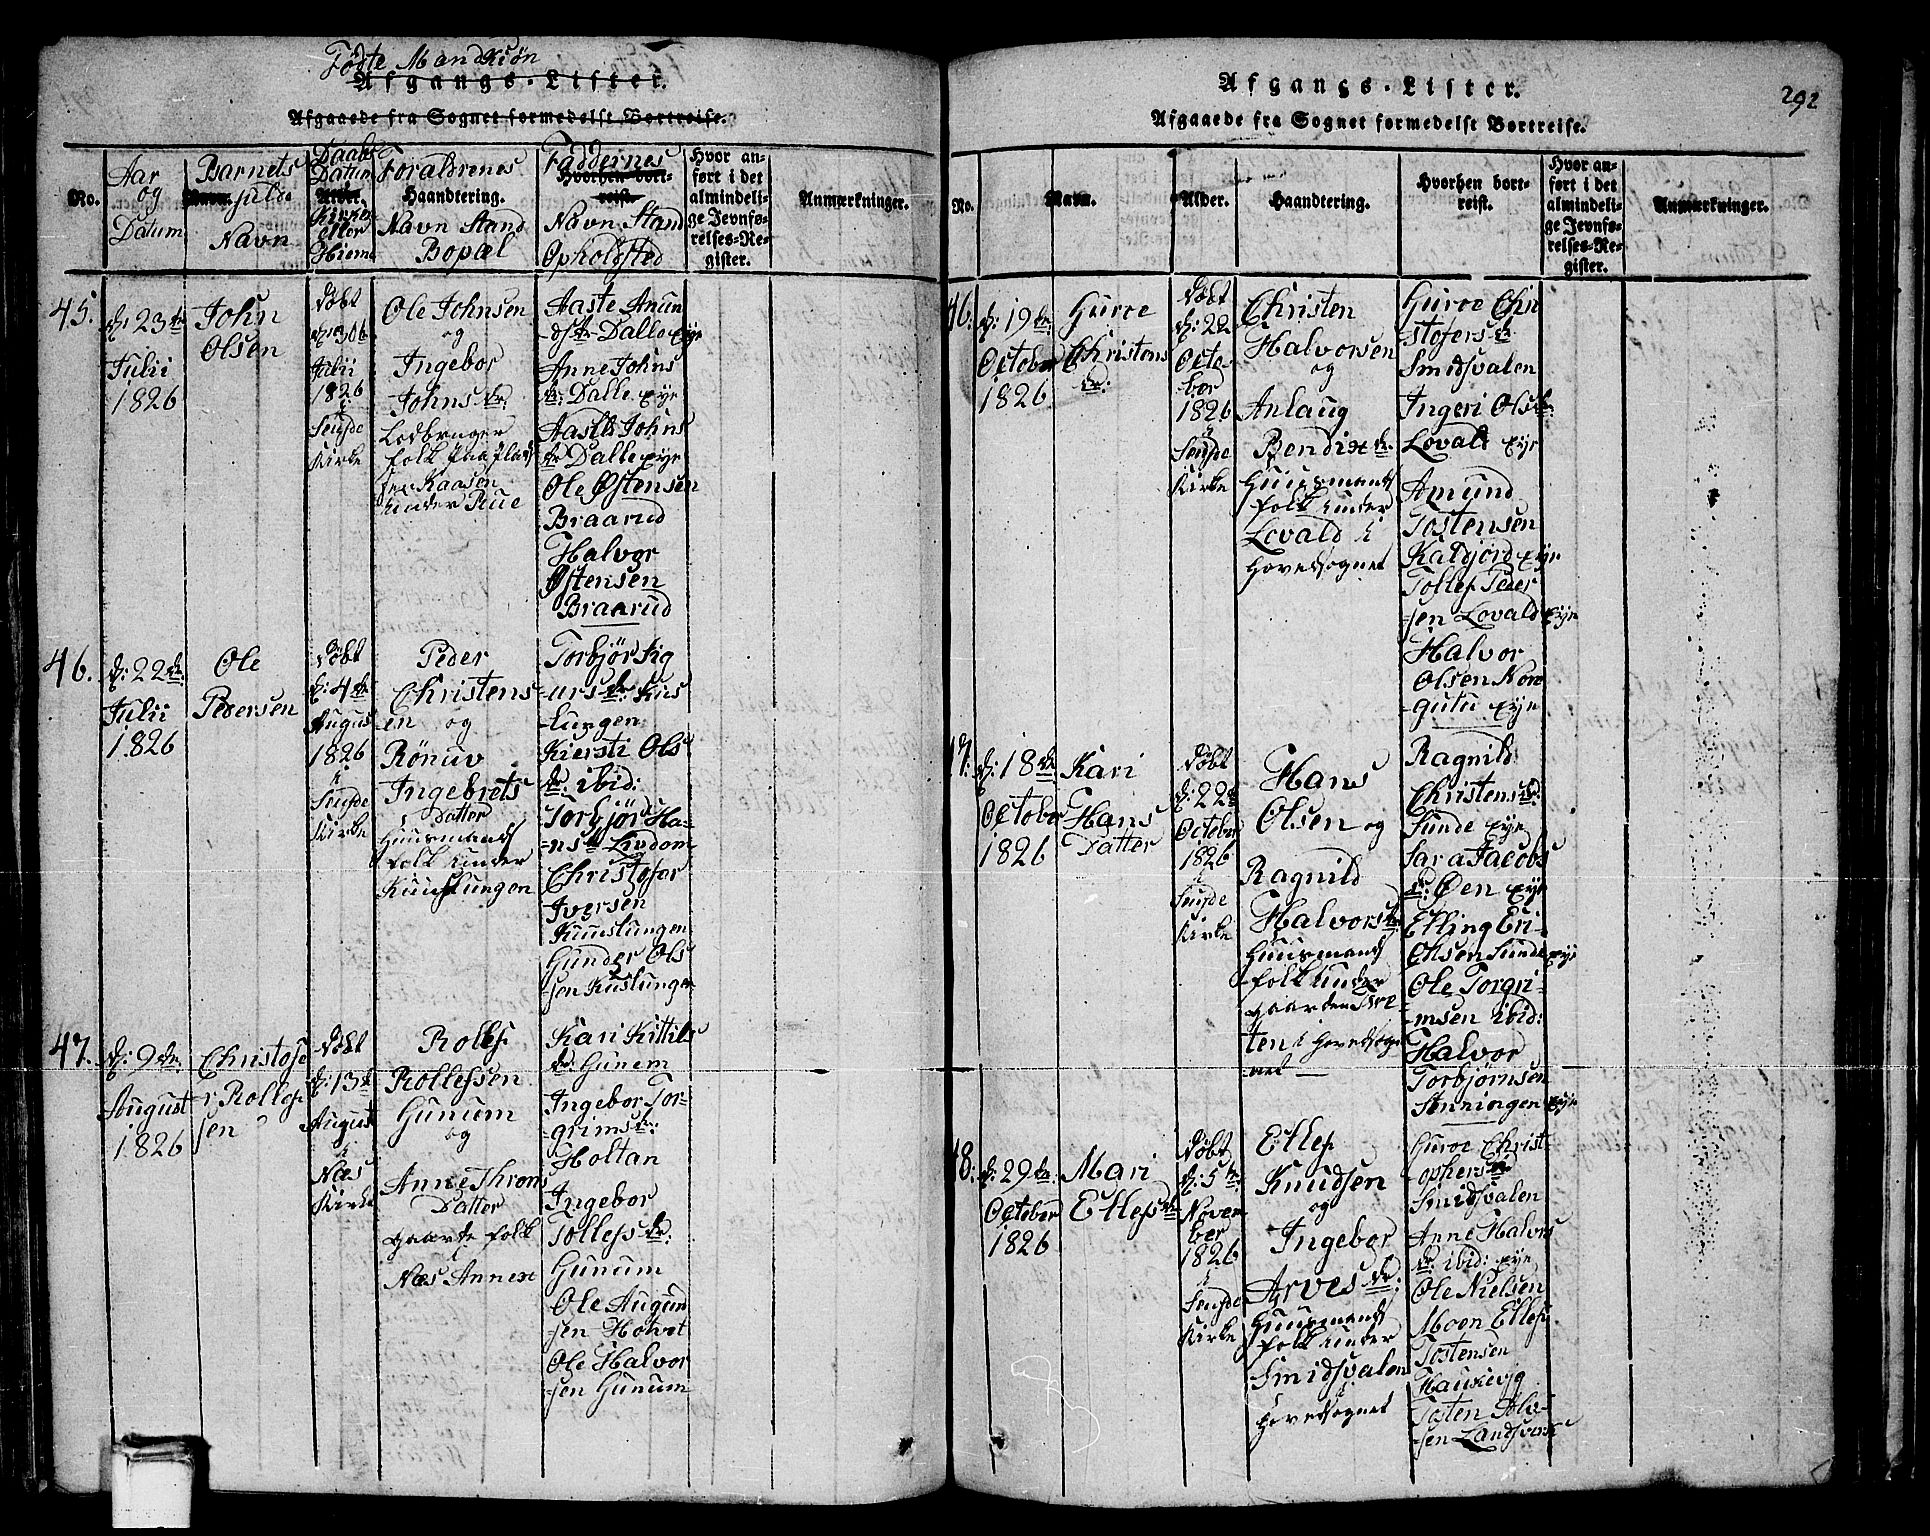 Födte Mandkiön
Afgangs-Lister.
Afgaaede fra Sognet formedelst Bortreise.
No.
Aar
og
Datum
Barnets
Navn fulde
Navn
Daabs
Datum
Alder.
Kirke
eller
Hieme
Foraldrenes
Haandtering.
Navn Stand
Bopæl
Faddernes
Hvorhen bort-
reist.
Navn Stand
Opholdsted
Hvor an-
ført i det
almindeli-
ge Jevnfø-
relses-Re-
gister.
Anmærkninger.
45.
d: 23de
Julii
1826
John
Olsen
Døbt
Julii
1826
i
Seufde
Kirke
Ole Johnsen
og
Ingebor
Johns dr:
Ledbruger
folk paa plad
sen Kaasen
under Rue
Aaste Anun
dsdr Dalle eyr
Anne Johns
dr: Dalle eyr
Aaslle Johns
dr Dalle eyr
Ole Østensen
Braarud
Halvor
Østensen
Braarud
46.
d: 22de
Julii
1826
Ole
Pedersen
Døbt
d: 4de
August
1826
i
Seufde
Kirke
Peder
Christens
en og
Rönuv
Ingebrets
Datter
Huusmands
folk under
Kuuslungen
Torbjör Sig
-urs dr: Kus
-lungen
Kiersti Ols
dr: ibid:
Torbjör Ha-
-ns dr Livdom
Christofer
Iversen
Kuuslungen
Gunder Ols
-sen Kuslungen
47.
d: 9de
August
1826
Christofe
-r Rollef
sen
Døbt
d: 13de
August
i
Næs
Kirke
Rollef
Rollefssen
Gunum
og
Anne Throns
Datter
gaarde folk
i
Næs Annex
Kari Kittils
dr: Gunem
Ingebor Tor-
grims dr:
Holtan
Ingebor
Tollefs dr:
Gunum
Ole Augund
-sen Hotvet
Ole Halvor
-sen Gunum
292
Afgangs-Lister.
Afgaaede fra Sognet formedelst Bortreise.
No.
Navn.
Alder.
Haandtering.
Hvorhen bort-
reist.
Hvor an-
ført i det
almindeli-
ge Jevnfø-
relses-Re-
gister.
Anmærkninger.
46.
d: 19de
October
1826
Guroe
Christens
dr:
Døbt
d: 22
Octo-
ber
1826
i
Seufde
Kirke
Christen
Halvorsen
og
Anlaug
Bendix dr.
Huusmands
folk under
Lovald i
Hovedsognet
Guroe Chri
stofers dr
Smidsvalen
Ingeri Ols dr.
Lovald eyr
Amund
Tostensen
Kaldjord eyr
Tollef Peder
-sen Lovald eyr
Halvor
Olsen Nore
-gutu eyr
47.
d: 18de
October
1826
Kari
Hans
Datter
Døbt
d: 22de
October
1826
i
Seufde
Kirke
Hans
Olsen og
Ragnild
Halvors dr
Huusmands
folk under
gaarden Tve
ten i Hovedsogn
-net
Ragnild
Christens dr:
Sunde eyr
Sara Jacobs
dr: Øen eyr
Etling Eri-
Olsen Sunde eyr
Ole Torgri-
-msen ibid:
Halvor
Torbjørnsen
Stenningen eyr
48.
d: 29de
October
1826
Mari
Ellefs dr
Døbt
d: 5te
Novem
ber
1826
i
Seufde
Kirke
Ellef
Knudsen
og
Ingebor
Arves dr:
Huusmands
folk under
Smidsvalen
Hovedsognet
Guroe Christ
-ophers dr
Smidsvalen
Anne Halvors
dr. ibid: eyr
Ole Nielsen
Moen Ellef
Tostensen
Haukevig
Tosten Solv-
-sen Landsverk